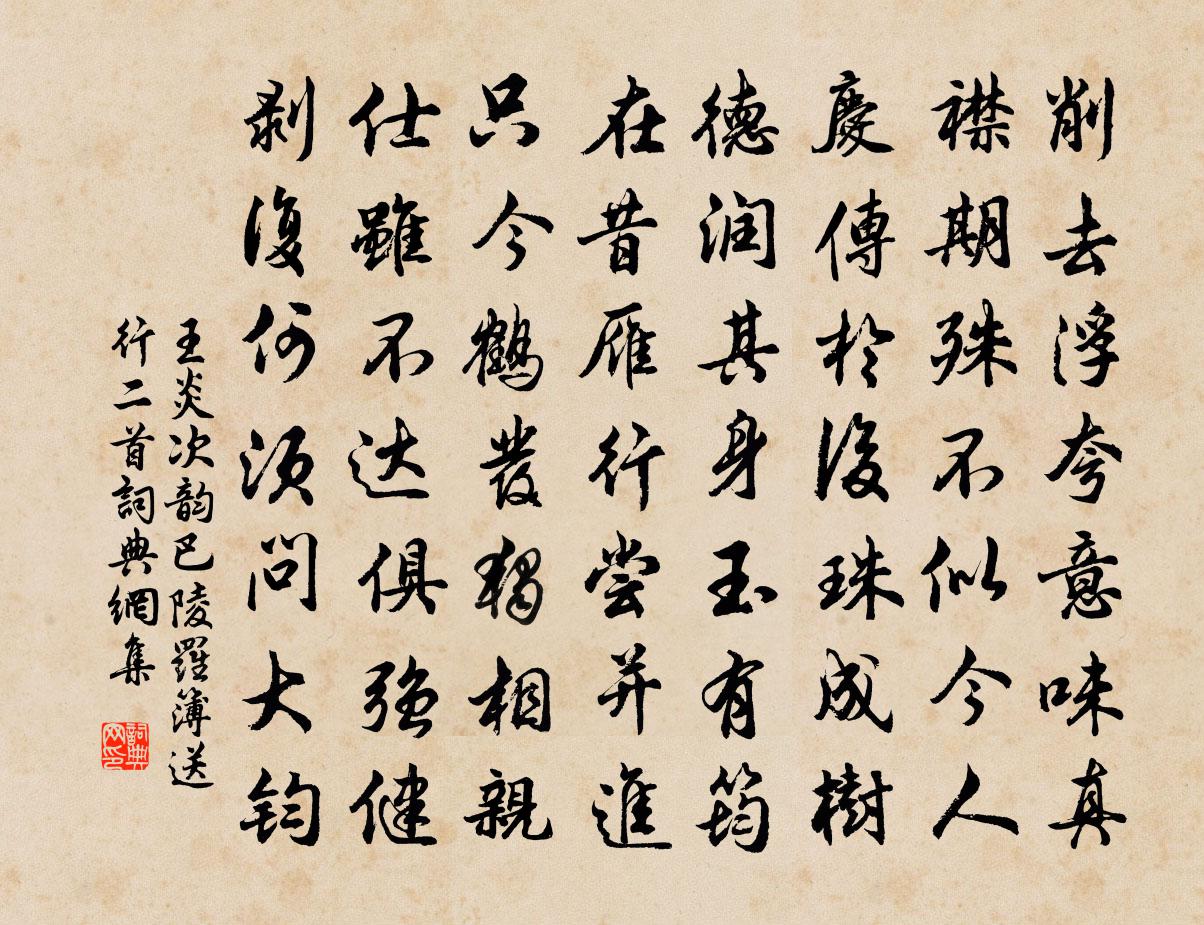 削去浮夸意味真
襟期殊不似今人
慶傳於後珠成樹
德润其身玉有筠
在昔雁行尝并進
只今鹤發獨相親
仕雖不达俱强健
剥復何须问大钧
王炎次韵巴陵羅簿送
行二首詞典網集
詞典
网印